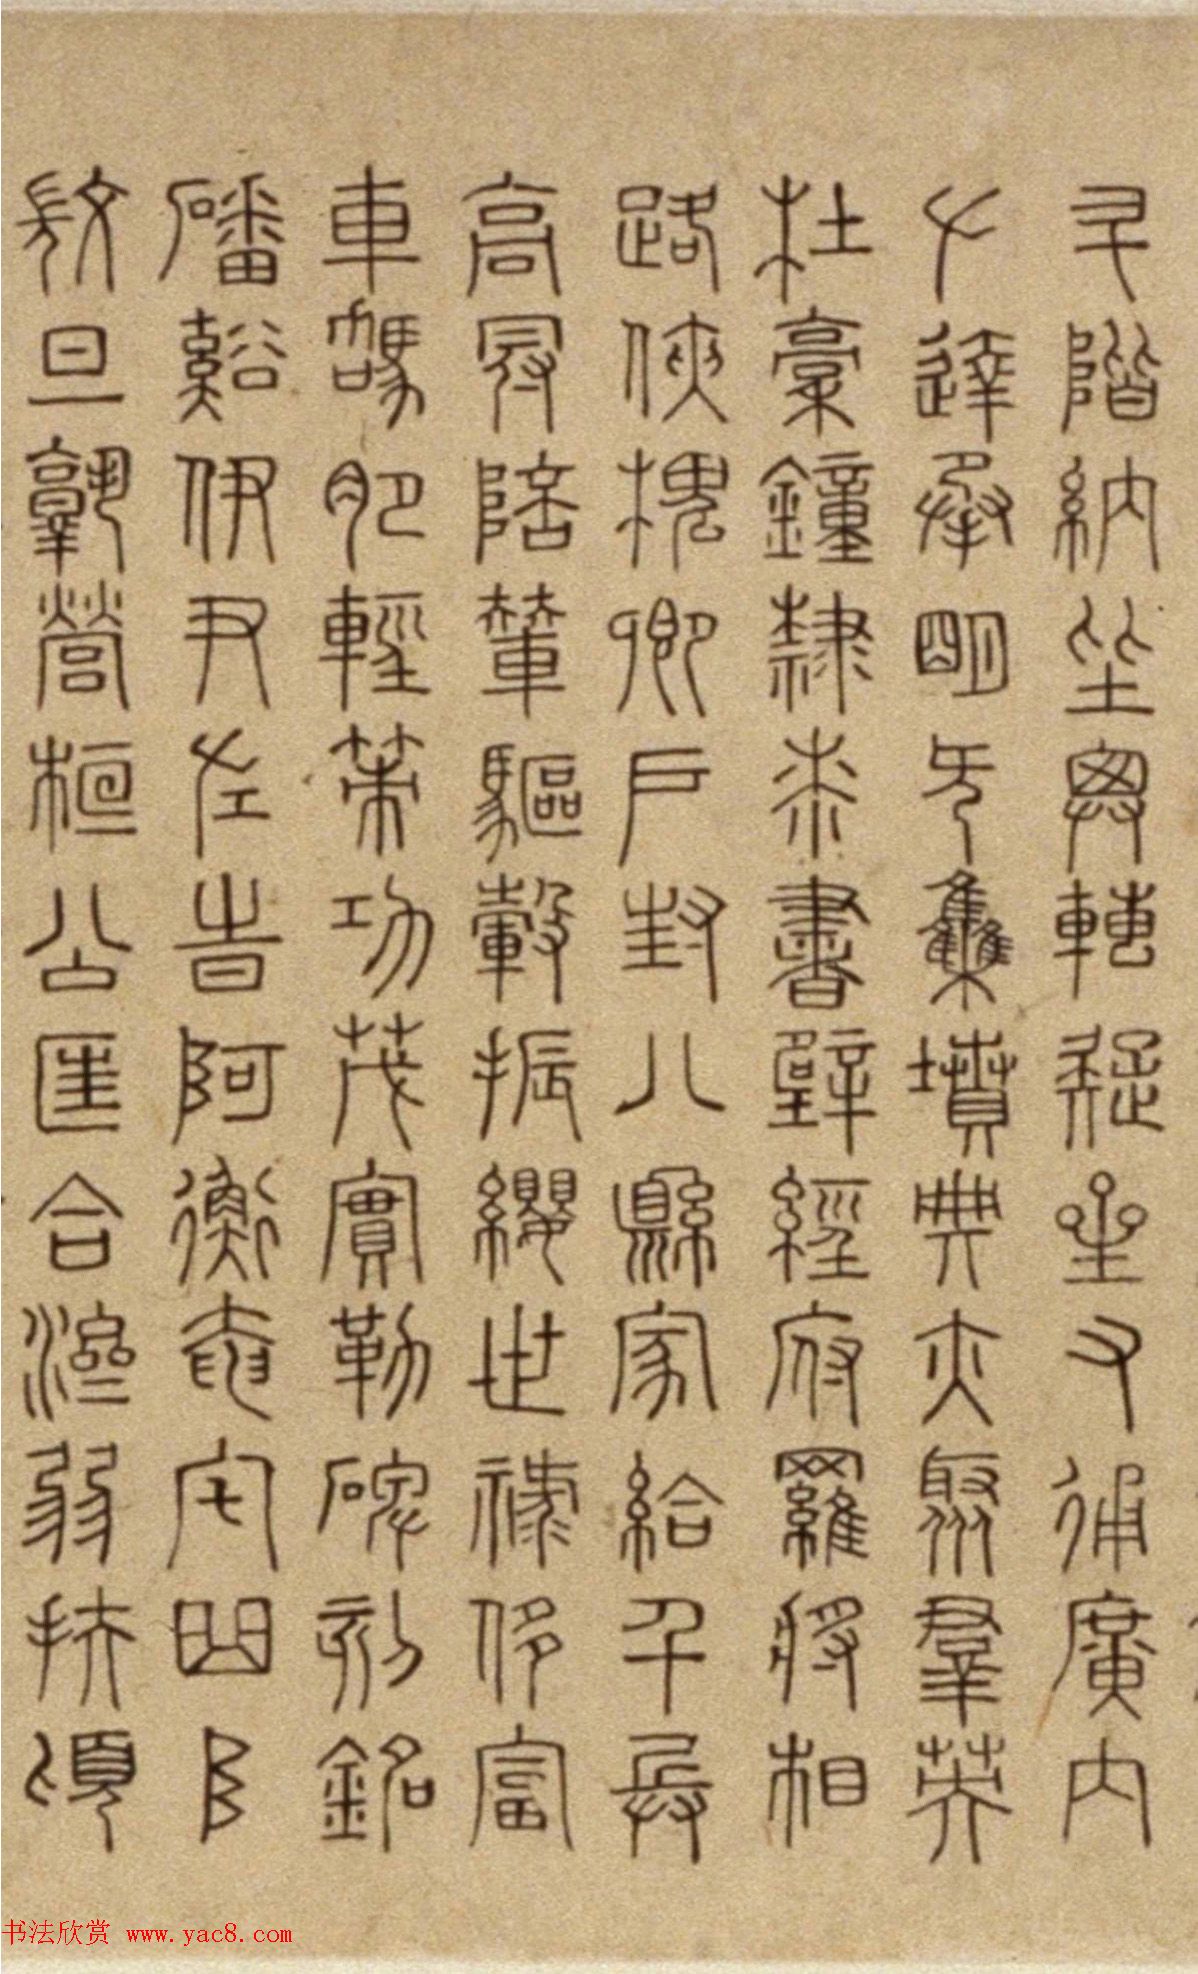 升階納陛弁轉疑星右通廣內
左達承明既集墳典亦聚羣英
杜稾鐘隸桼書壁經府羅將相
路俠槐卿戶封八縣家給千兵
高冠陪輦驅轂振纓世祿侈富
車駕肥輕策功茂實勒碑刻銘
磻谿伊尹佐時阿衡奄宅曲阜
微旦孰營桓公匡合濟弱扶傾
书法欣赏 www.yac8.com